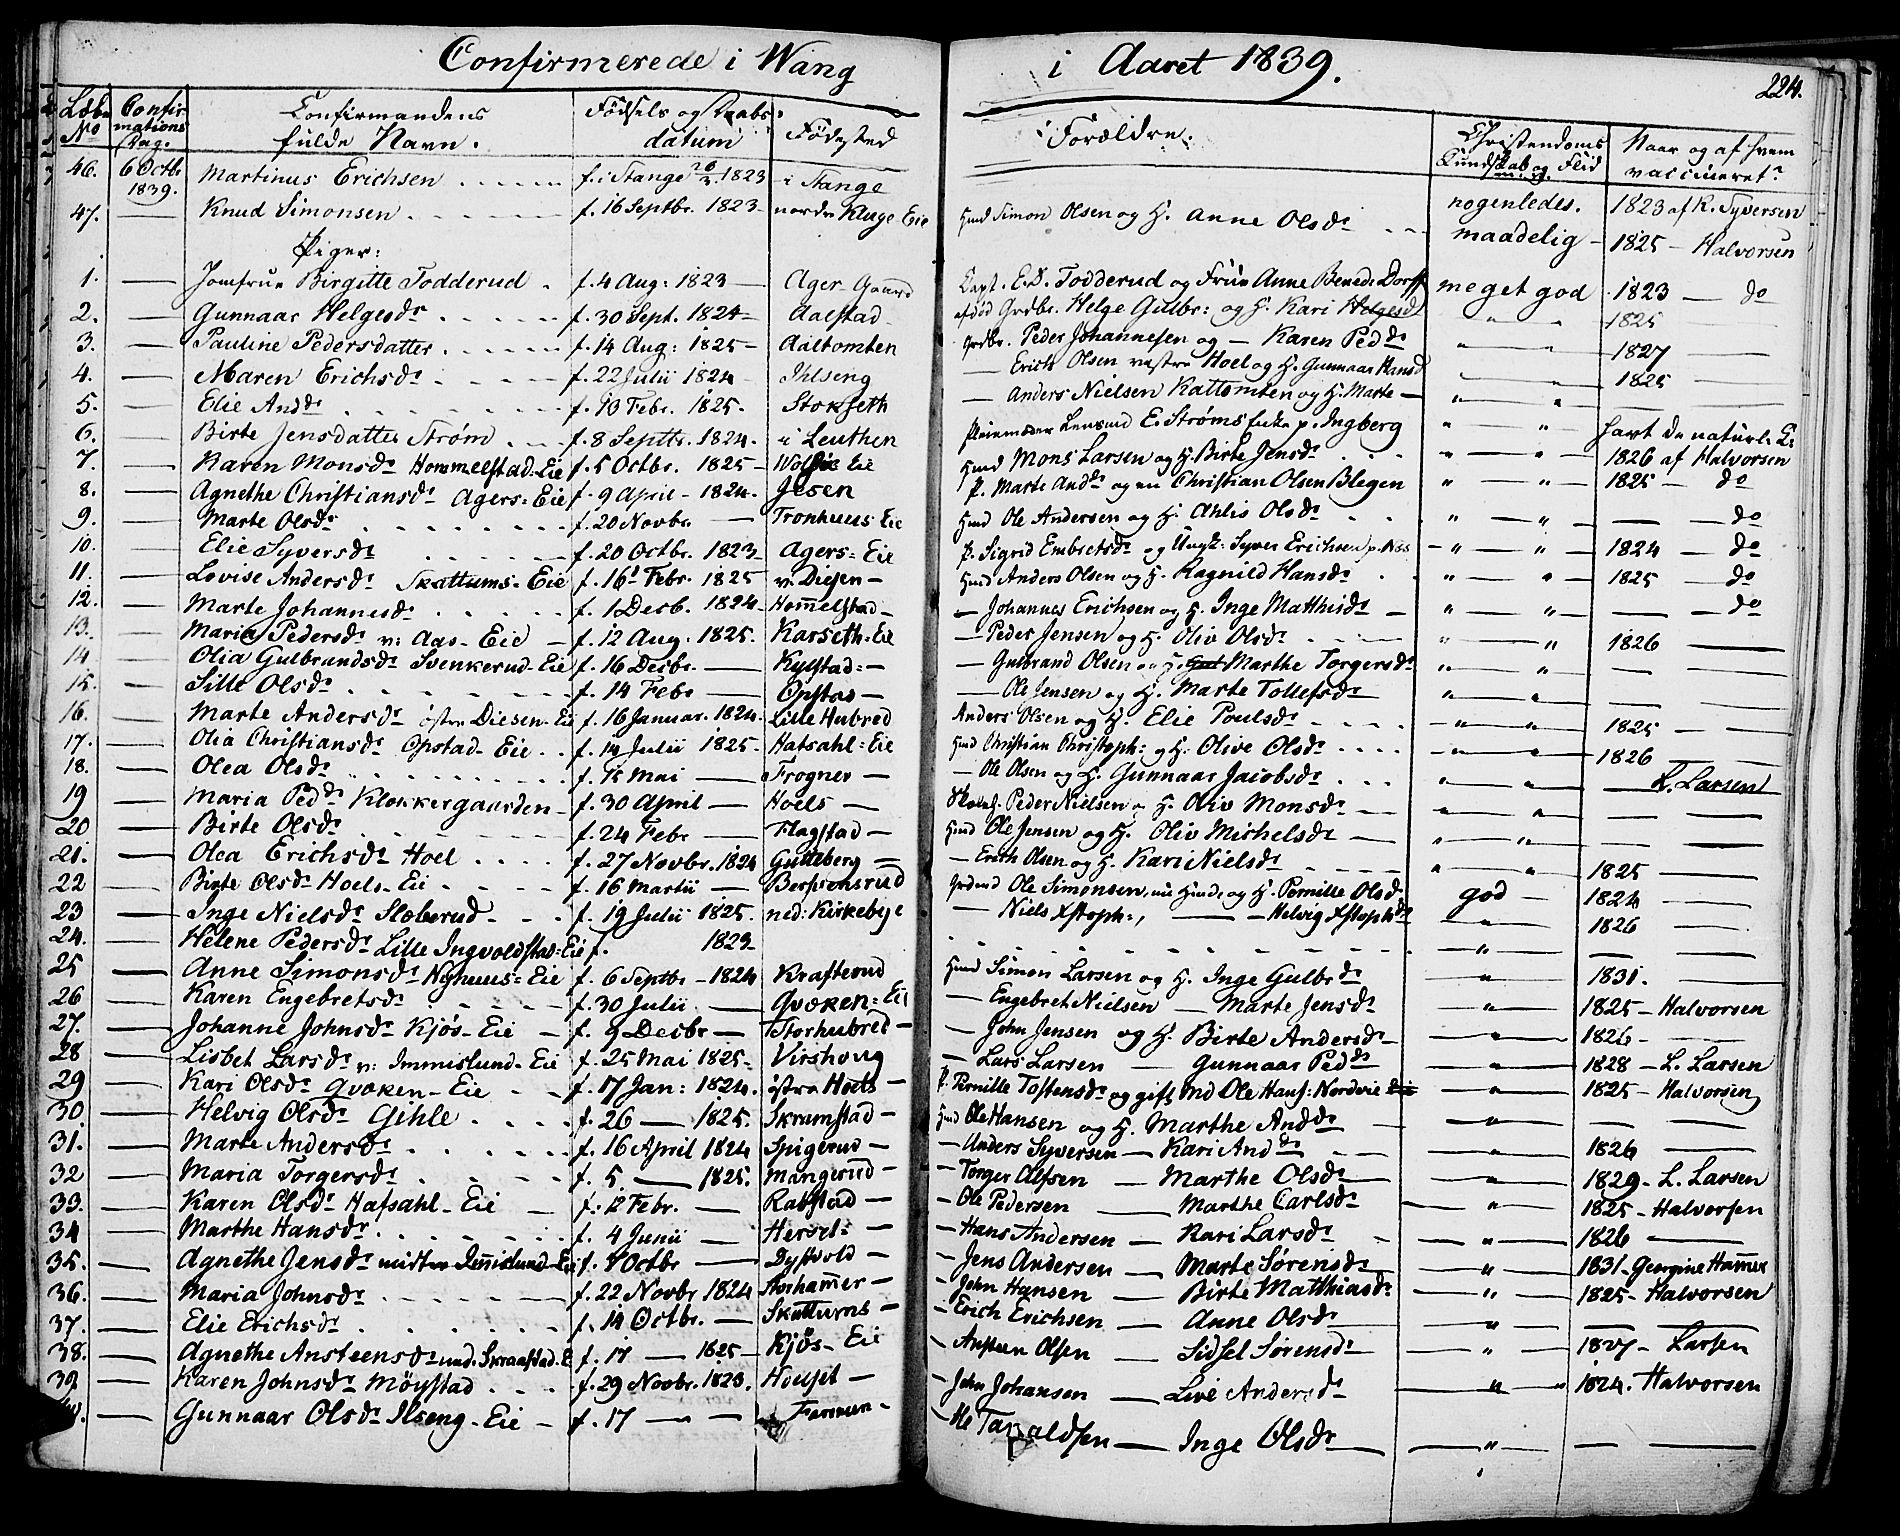 Confirmerede i Wang i Aaret 1839.
224.
Løbe No | Confirmations Dag. | Confirmandens fulde Navn. | Fødsels og Daabs datum | Fødested | Forældre. | Christendoms Kundskab og Flid | Naar og af hvem vaccineret.
46. | 6 Octbr 1839. | Martinus Erichsen | f. i Stange 1823 | i Stange | nogenledes. | 1823 af K. Syversen
47. | — | Knud Simonsen | f. 16 Septbr. 1823 | nordre Kluge Eie | Hmd Simon Olsen og H. Anne Olsdr | maadelig | 1825 — Halvorsen
Piger:
1. — Jomfrue Birgitte Todderud | f. 4 Aug: 1823 | Ager Gaard | Capt. E. D. Todderud og Frue Anne Bened: Dorff | meget god | 1823 — do
2. — Gunnaar Helgesdr | f. 30 Sept. 1824 | Aalstad | afdød Grdbr. Helge Gulbr: og H. Kari Helgesd | " " | 1825 —
3. — Pauline Pedersdatter | f. 14 Aug: 1825 | Aaltomten | Grdbr. Peder Johannesen og — Karen Peddr | " " | 1827 —
4. — Maren Erichsdr | f. 22 Julii 1824 | Ihlseng | — Erich Olsen vestre Hoel og H. Gunnaar Hansd | " " | 1825 —
5. — Elie Anddr | f. 10 Febr. 1825 | Stokseth | — Anders Nielsen Kattomten og H. Marte — | " " | — —
6. — Birte Jensdatter Strøm | f. 8 Septbr. 1824 | i Leuthen | Pleiemoder Lensmd E. Strøms Enke p. Ingberg | " " | havt de naturl:
7. — Karen Monsdr Hommelstad-Eie | f. 5 Octbr. 1825 | Eie | Hmd Mons Larsen og H. Birte Jensdr | " " | 1826 af Halvorsen
8. — Agnethe Christiansdr Agers-Eie | f. 9 April 1824 | Jesen | P. Marte Anddr og Christian Olsen Blegen | " " | 1825 — do
9. — Marte Olsdr | f. 20 Novbr. — | Tronhuus Eie | Hmd Ole Andersen og H. Ahlis Olsdr | " " | — do
10. — Elie Syversdr | f. 20 Octbr. 1823 | Agers-Eie | P. Sigrid Embretsdr og Ungk: Syver Erichsen | " " | 1824 — do
11. — Lovise Andersdr Skattums-Eie | f. 16 Febr. 1825 | v. Diesen — | Hmd Anders Olsen og H. Ragnild Hansdr | " " | 1825 — do
12. — Marte Johannesdr | f. 1 Desb. 1824 | Hommelstad — | — Johannes Erichsen og H. Inge Matthisdr | " " | — do
13. — Maria Pedersdr v: Aas-Eie | f. 12 Aug: 1825. | Karseth-Eie | — Peder Jensen og H. Oliv Olsdr | " " | 1826 —
14 — Olia Gulbrandsdr Svenkerud-Eie | f. 16 Desbr. — | Kylstad — | — Gulbrand Olsen og H. Marthe Torgersdr | " " | — —
15. — Sille Olsdr | f. 14 Febr — | Opstad — | — Ole Jensen og H. Marte Tollefsdr | " " | — —
16. — Marte Andersdr østre Diesen-Eie | f. 16 Januar. 1824. | Lille Hubred | Anders Olsen og H. Elie Poulsdr | " " | 1825 —
17. — Olia Christiansdr Opstad-Eie | f. 14 Julii 1825 | Hafsahl-Eie | Hmd Christian Christoph: og H. Olive Olsdr | " " | 1826 —
18. — Olea Olsdr | f. Mai — | Frogner — | — Ole Olsen og H. Gunnaar Jacobsdr | " " | — L. Larsen
19 — Maria Peddr Klokkergaarden | f. 30 April — | Hoels — | Peder Nielsen og H. Oliv Monsdr | " " | — —
20 — Birte Olsdr | f. 24 Febr — | Flagstad — | Hmd Ole Jensen og H. Oliv Michelsdr | " " | — —
21. — Olea Erichsdr Hoel | f. 27 Novbr. 1824 | Gulleberg — | — Erich Olsen og H. Kari Nielsdr | " " | 1825 —
22 — Birte Olsdr Hoels-Eie | f. 16 Martii — | | Ole Simonsen, og H. Pernille Olsd | god | 1824 —
23 — Inge Nielsdr Sloberud | f. 19 Julii 1825. | ned: Kirkebye | — Niels Xstoph:, — Helvig Xstophdr | " | 1826 —
24. — Helene Pedersdr Lille Ingvoldstad-Eie | f. 1823 | | | " | —
25 — Anne Simonsdr Nyhuus-Eie | f. 6 Septbr 1824 | Krafterud | Hmd Simon Larsen og H. Inge Gulbrdr | " | 1831. —
26 — Karen Engebretsdr | f. 30 Julii — | Qvæken-Eie | — Engebret Nielsen — Marte Jensdr | " | 1825 — Halvorsen
27. — Johanne Johnsdr Kjøs-Eie | f. 9 Desbr — | Storhubred — | — John Jensen og H. Birte Andersdr | " | 1826 —
28 — Lisbet Larsdr v: Immislund-Eie | f. 25 Mai 1825 | Virshoug | — Lars Larsen — Gunnaar Peddr | " | 1828 — L. Larsen
29 — Kari Olsdr Qvæken-Eie | f. 17 Jan: 1824. | østre Hoels — | P. Pernille Tostensdr og gift Md Ole Hans: Nordvie | " | 1825 — Halvorsen
30. — Helvig Olsdr Gihle | f. 26 — 1825. | Skramstad — | Hmd Ole Hansen og H. Marthe Anddr | " | — —
31. — Marte Andersdr | f. 16 April 1824 | Spigerud — | — Anders Syversen — Kari Anddr | " | 1826 —
32 — Maria Torgersdr | f. 5. — 1825. | Mangerud — | — Torger Alfsen — Marthe Olsdr | " | 1829 — L. Larsen
33. — Karen Olsdr Hafsahl-Eie | f. 12 Febr. — | Rabstad — | — Ole Pedersen — Marthe Carlsdr | " | 1825 — Halvorsen
34 — Marthe Hansdr | f. 4 Junii — | Hersel — | — Hans Andersen — Kari Larsdr | " | 1826 —
35. — Agnethe Jensdr midtre Imislund-Eie | f. Octbr — | Dystvold — | — Jens Andersen — Marte Sørensdr | " | 1831 — Georgine Hammer
36. — Maria Johnsdr | f. 22 Novbr 1824 | Storhamer — | — John Hansen — Birte Matthiasdr | " | 1825 — Halvorsen
37. — Elie Erichsdr | f. 14 Octbr. — | Skattums — | — Erich Erichsen — Anne Olsdr | " | — —
38. — Agnethe Ansteensdr ned: Skraastad-E | f. 17 — 1825 | Kjøs-Eie | — Ansteen Olsen — Sidsel Sørensdr | " | 1827 — Larsen
39. — Karen Johnsdr Møystad | f. 29 Novbr. 1823. | | — John Johansen — Live Andersdr | " | 1824. Halvorsen
— Gunnaar Olsdr Ilseng-Eie | f. 17 — — | | — Ole — Inge Olsdr | " | — —